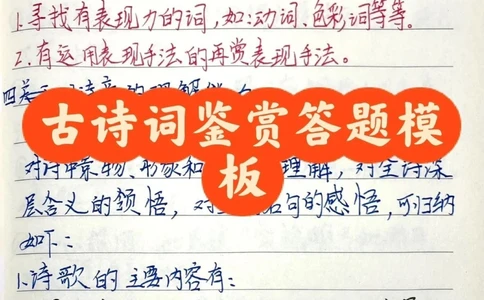 1.寻找有表现力的词，如:动词、色彩词等等。
2.有运用表现手法的再赏表现手法。
四
古诗词鉴赏答题模
板
对诗中景物、形象和 理解，对全诗深
层含义的领悟，对 名句的感悟，可归纳
如下：
1.诗歌的主要内容有：